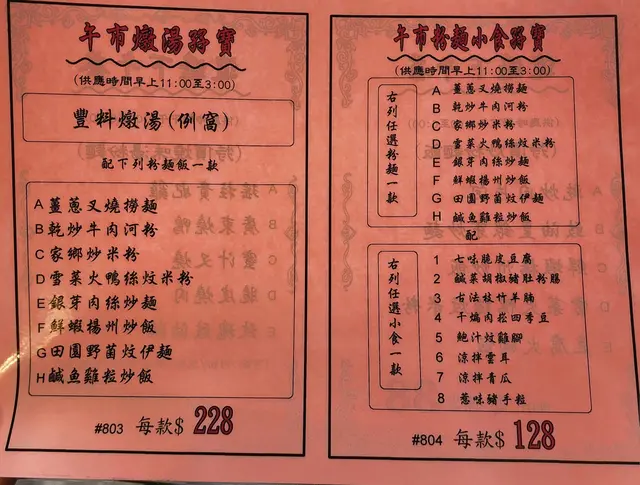 午市燉湯孖寶
(供應時間早上11:00至3:00)
豐料燉湯(例窩)
配下列粉麵飯一款
A 薑蔥叉燒撈麵
B 乾炒牛肉河粉
C 家鄉炒米粉
D 雪菜火鴨絲炆米粉
E 銀芽肉絲炒麵
F 鮮蝦楊州炒飯
G 田園野菌炆伊麵
H 鹹魚雞粒炒飯
#803 每款$ 228
午市粉麵小食孖寶
(供應時間早上11:00至3:00)
右列任選粉麵一款
A 薑蔥叉燒撈麵
B 乾炒牛肉河粉
C 家鄉炒米粉
D 雪菜火鴨絲炆米粉
E 銀芽肉絲炒麵
F 鮮蝦楊州炒飯
G 田園野菌炆伊麵
H 鹹魚雞粒炒飯
配
右列任選小食一款
1 七味脆皮豆腐
2 鹹菜胡椒豬肚粉腸
3 古法枝竹羊腩
4 干煸肉崧四季豆
5 鮑汁炆雞腳
6 涼拌雲耳
7 涼拌青瓜
8 惹味豬手粒
#804 每款$ 128